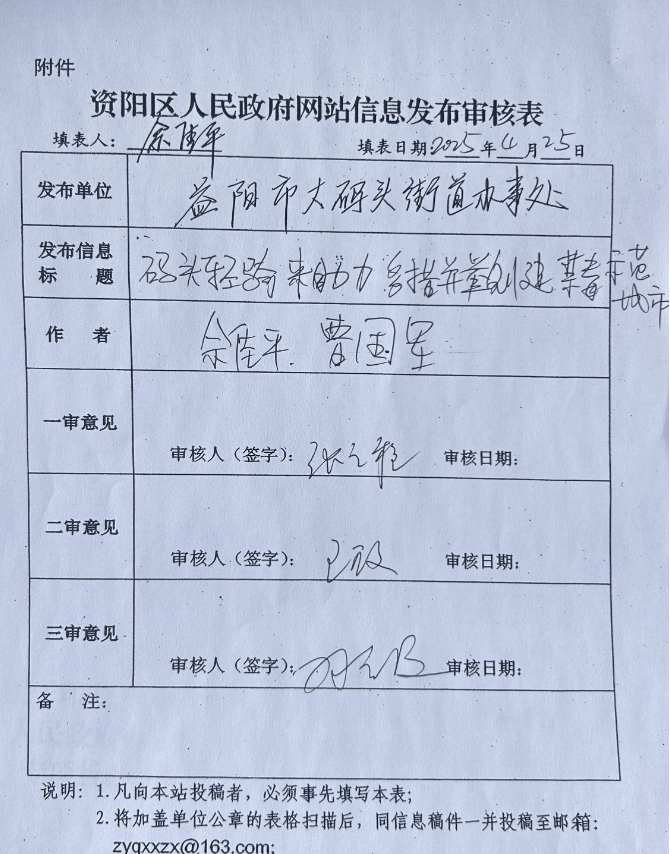 附件
资阳区人民政府网站信息发布审核表
填表人：余佳平 填表日期：2025年4月25日
发布单位 益阳市大码头街道办事处
发布信息标题 码头轻骑来助力 多措并举创建禁毒示范城市
作者 余佳平、曹国军
一审意见
审核人（签字）： 审核日期：
二审意见
审核人（签字）： 审核日期：
三审意见
审核人（签字）： 审核日期：
备注：
说明：1.凡向本站投稿者，必须事先填写本表；
2.将加盖单位公章的表格扫描后，同信息稿件一并投稿至邮箱：
zyqxxzx@163.com;